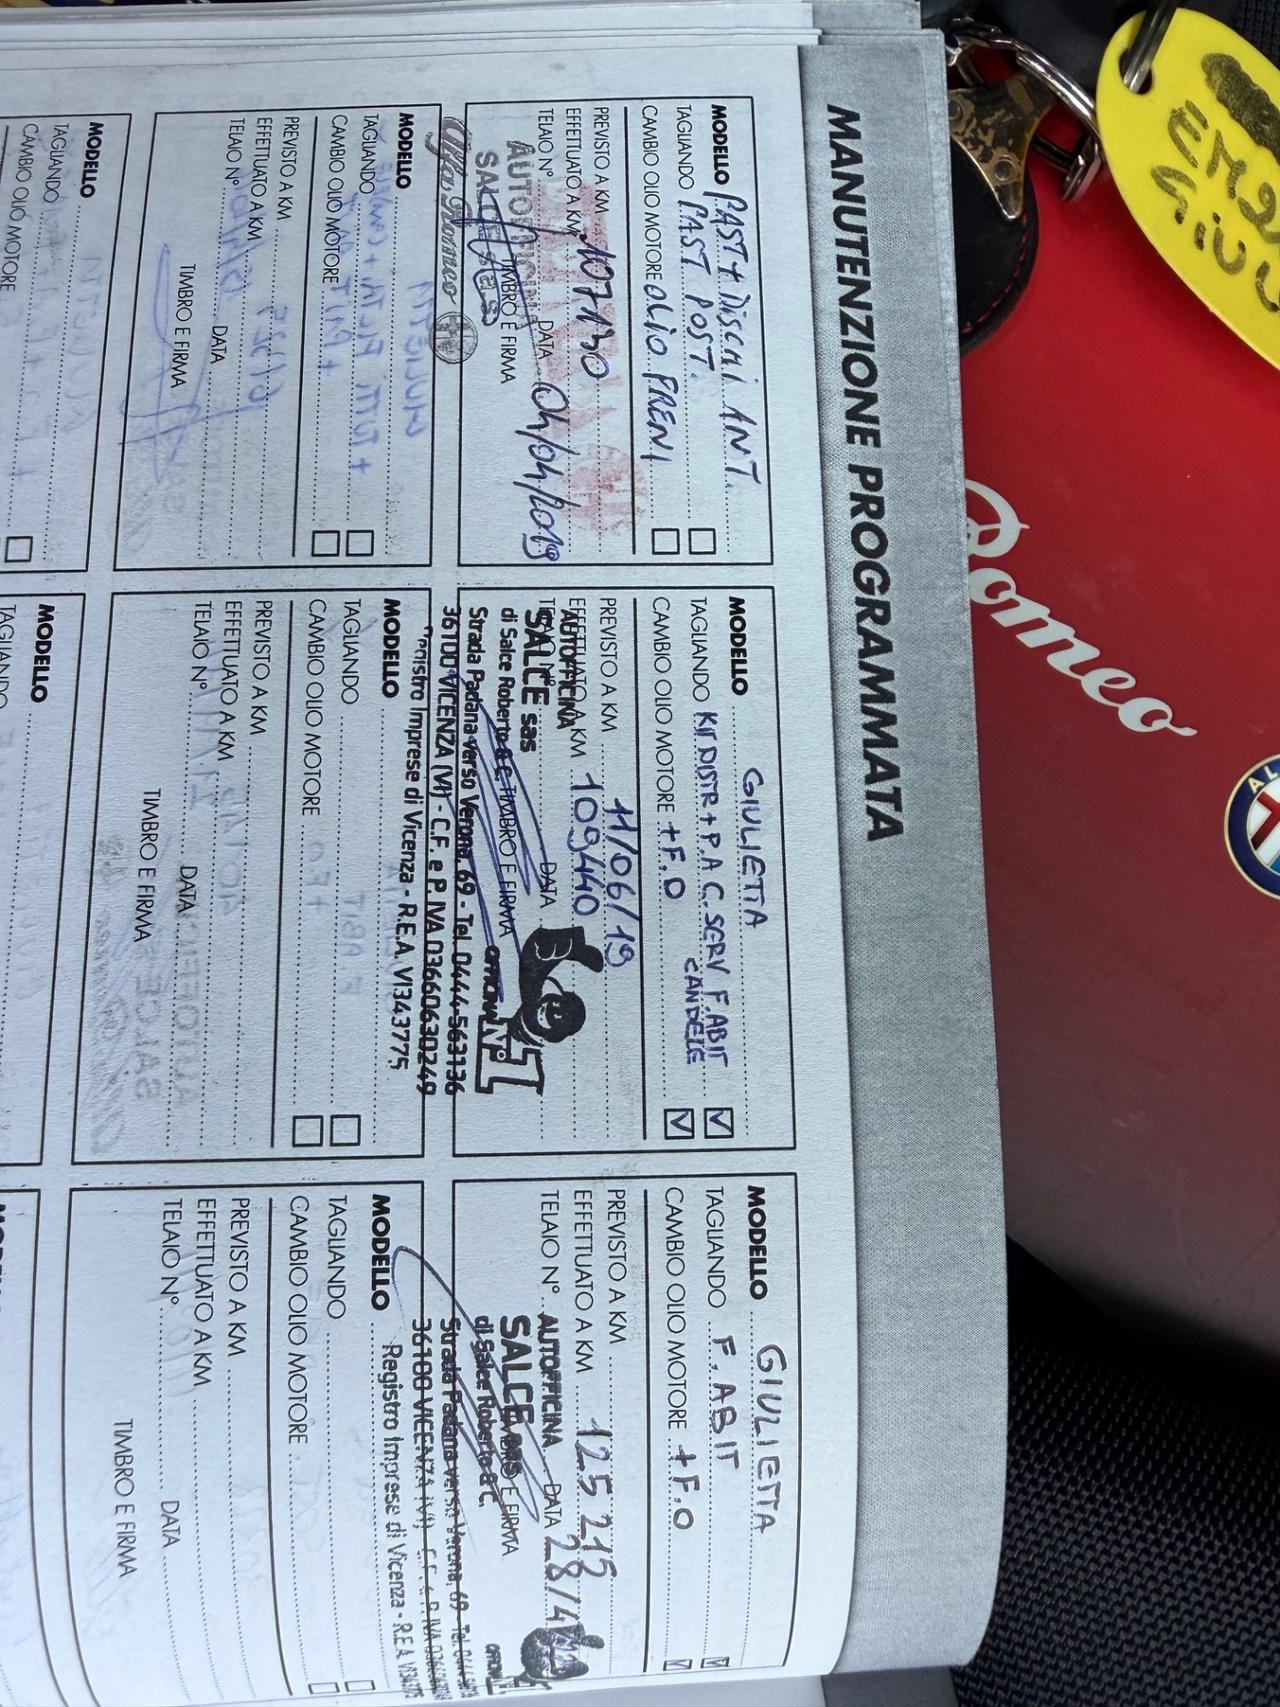 MANUTENZIONE PROGRAMMATA
MODELLO PAST + DISCHI ANT.
TAGLIANDO PAST POST.
CAMBIO OLIO MOTORE OLIO FRENI
PREVISTO A KM
EFFETTUATO A KM 107130
TELAIO N° DATA 04/04/2019
TIMBRO E FIRMA
AUTOFFICINA
SALCE
Alfa Romeo
MODELLO GIULIETTA
TAGLIANDO KIT DISTR + P.A C. SERV F. ABIT
CANDELE
CAMBIO OLIO MOTORE + F.O
PREVISTO A KM 11/06/19
EFFETTUATO A KM 109440
TELAIO N° DATA
TIMBRO E FIRMA
AUTOFFICINA
SALCE sas
di Salce Roberto & C.
Strada Padana verso Verona, 69 - Tel. 0444-563136
36100 VICENZA (VI) - C.F. e P. IVA 03660630249
Registro Imprese di Vicenza - R.E.A. VI343775
OFFICINA N° 1
MODELLO GIULIETTA
TAGLIANDO F. ABIT
CAMBIO OLIO MOTORE + F.O
PREVISTO A KM
EFFETTUATO A KM 125 215
TELAIO N° DATA 28/4
TIMBRO E FIRMA
AUTOFFICINA
SALCE sas
di Salce Roberto & C.
Strada Padana verso Verona, 69 - Tel.
36100 VICENZA (VI)
Registro Imprese di Vicenza - R.E.A.
MODELLO
TAGLIANDO
CAMBIO OLIO MOTORE
PREVISTO A KM
EFFETTUATO A KM
TELAIO N° DATA
TIMBRO E FIRMA
MODELLO
TAGLIANDO
CAMBIO OLIO MOTORE
PREVISTO A KM
EFFETTUATO A KM
TELAIO N° DATA
TIMBRO E FIRMA
MODELLO
TAGLIANDO
CAMBIO OLIO MOTORE
PREVISTO A KM
EFFETTUATO A KM
TELAIO N° DATA
TIMBRO E FIRMA
MODELLO
TAGLIANDO
CAMBIO OLIO MOTORE
MODELLO
TAGLIANDO
MODELLO
Romeo
AL